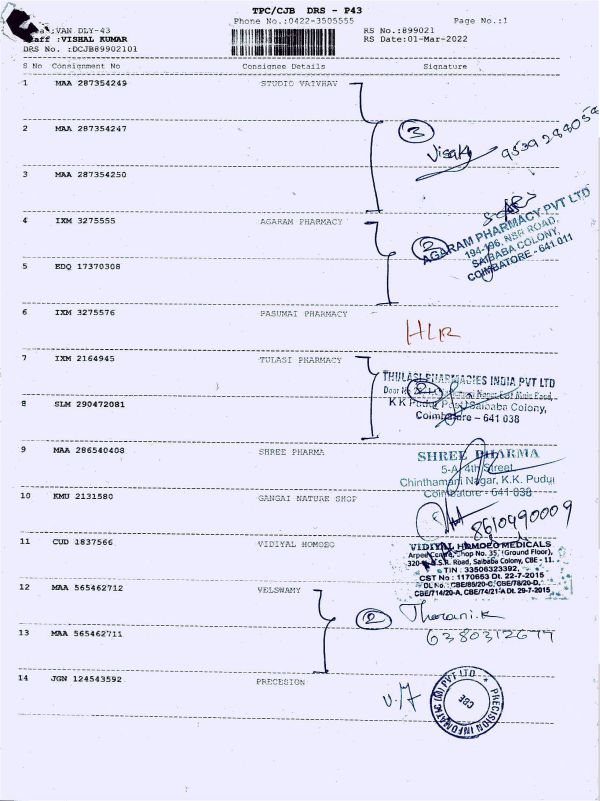 TPC/CJB DRS - P43
Phone No.:0422-3505555 Page No.:1
:IVAN DLY-43 RS No.:899021
Staff :VISHAL KUMAR RS Date:01-Mar-2022
DRS No. :DCJB89902101
S No Consignment No Consignee Details Signature
1 MAA 287354249 STUDIO VAIVHAV
3
2 MAA 287354247 9539288058
3 MAA 287354250
4 IXM 3275555 AGARAM PHARMACY
2 AGARAM PHARMACY PVT LTD
194-196, NSR ROAD,
SAIBABA COLONY,
COIMBATORE - 641 011
5 EDQ 17370308
6 IXM 3275576 PASUMAI PHARMACY
7 IXM 2164945 TULASI PHARMACY
THULASI PHARMACIES INDIA PVT LTD
2
8 SLM 290472081 K K Pudur Post Saibaba Colony,
Coimbatore - 641 038
9 MAA 286540408 SHREE PHARMA
SHREE PHARMA
5-A, 4th Street,
Chinthamani Nagar, K.K. Pudur
Coimbatore - 641 038
10 KMU 2131580 GANGAI NATURE SHOP
8610490009
11 CUD 1837566 VIDIYAL HOMOEO
VIDIYAL HOMOEO MEDICALS
Shop No. 35, (Ground Floor),
N.S.R. Road, Saibaba Colony, CBE - 11.
TIN : 33506323392,
CST No : 1170653 Dt. 22-7-2015
DL No. : CBE/85/20-C, CBE/78/20-D,
CBE/714/20-A, CBE/74/21-A Dt. 29-7-2015
12 MAA 565462712 VELSWAMY
2 Tharani.K
6380312677
13 MAA 565462711
14 JGN 124543592 PRECESION
PRECISION INFOMATIC (M) PVT LTD
CBE